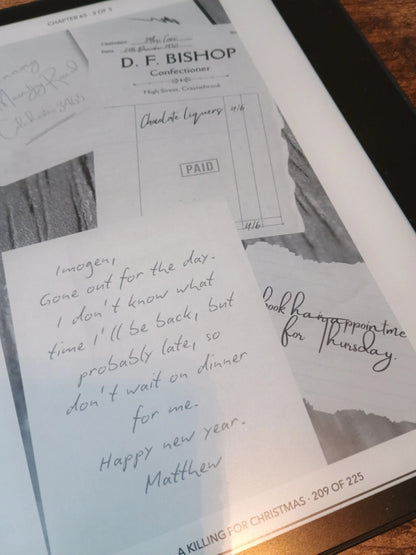 CHAPTER 45 · 3 OF 5
D. F. BISHOP
Confectioner
High Street, Craynebrook
Chocolate liquers 4/6
PAID
4/6
Imogen,
Gone out for the day.
I don't know what
time I'll be back, but
probably late, so
don't wait on dinner
for me.
Happy new year.
Matthew
book hair appointme
for Thursday.
A KILLING FOR CHRISTMAS · 209 OF 225